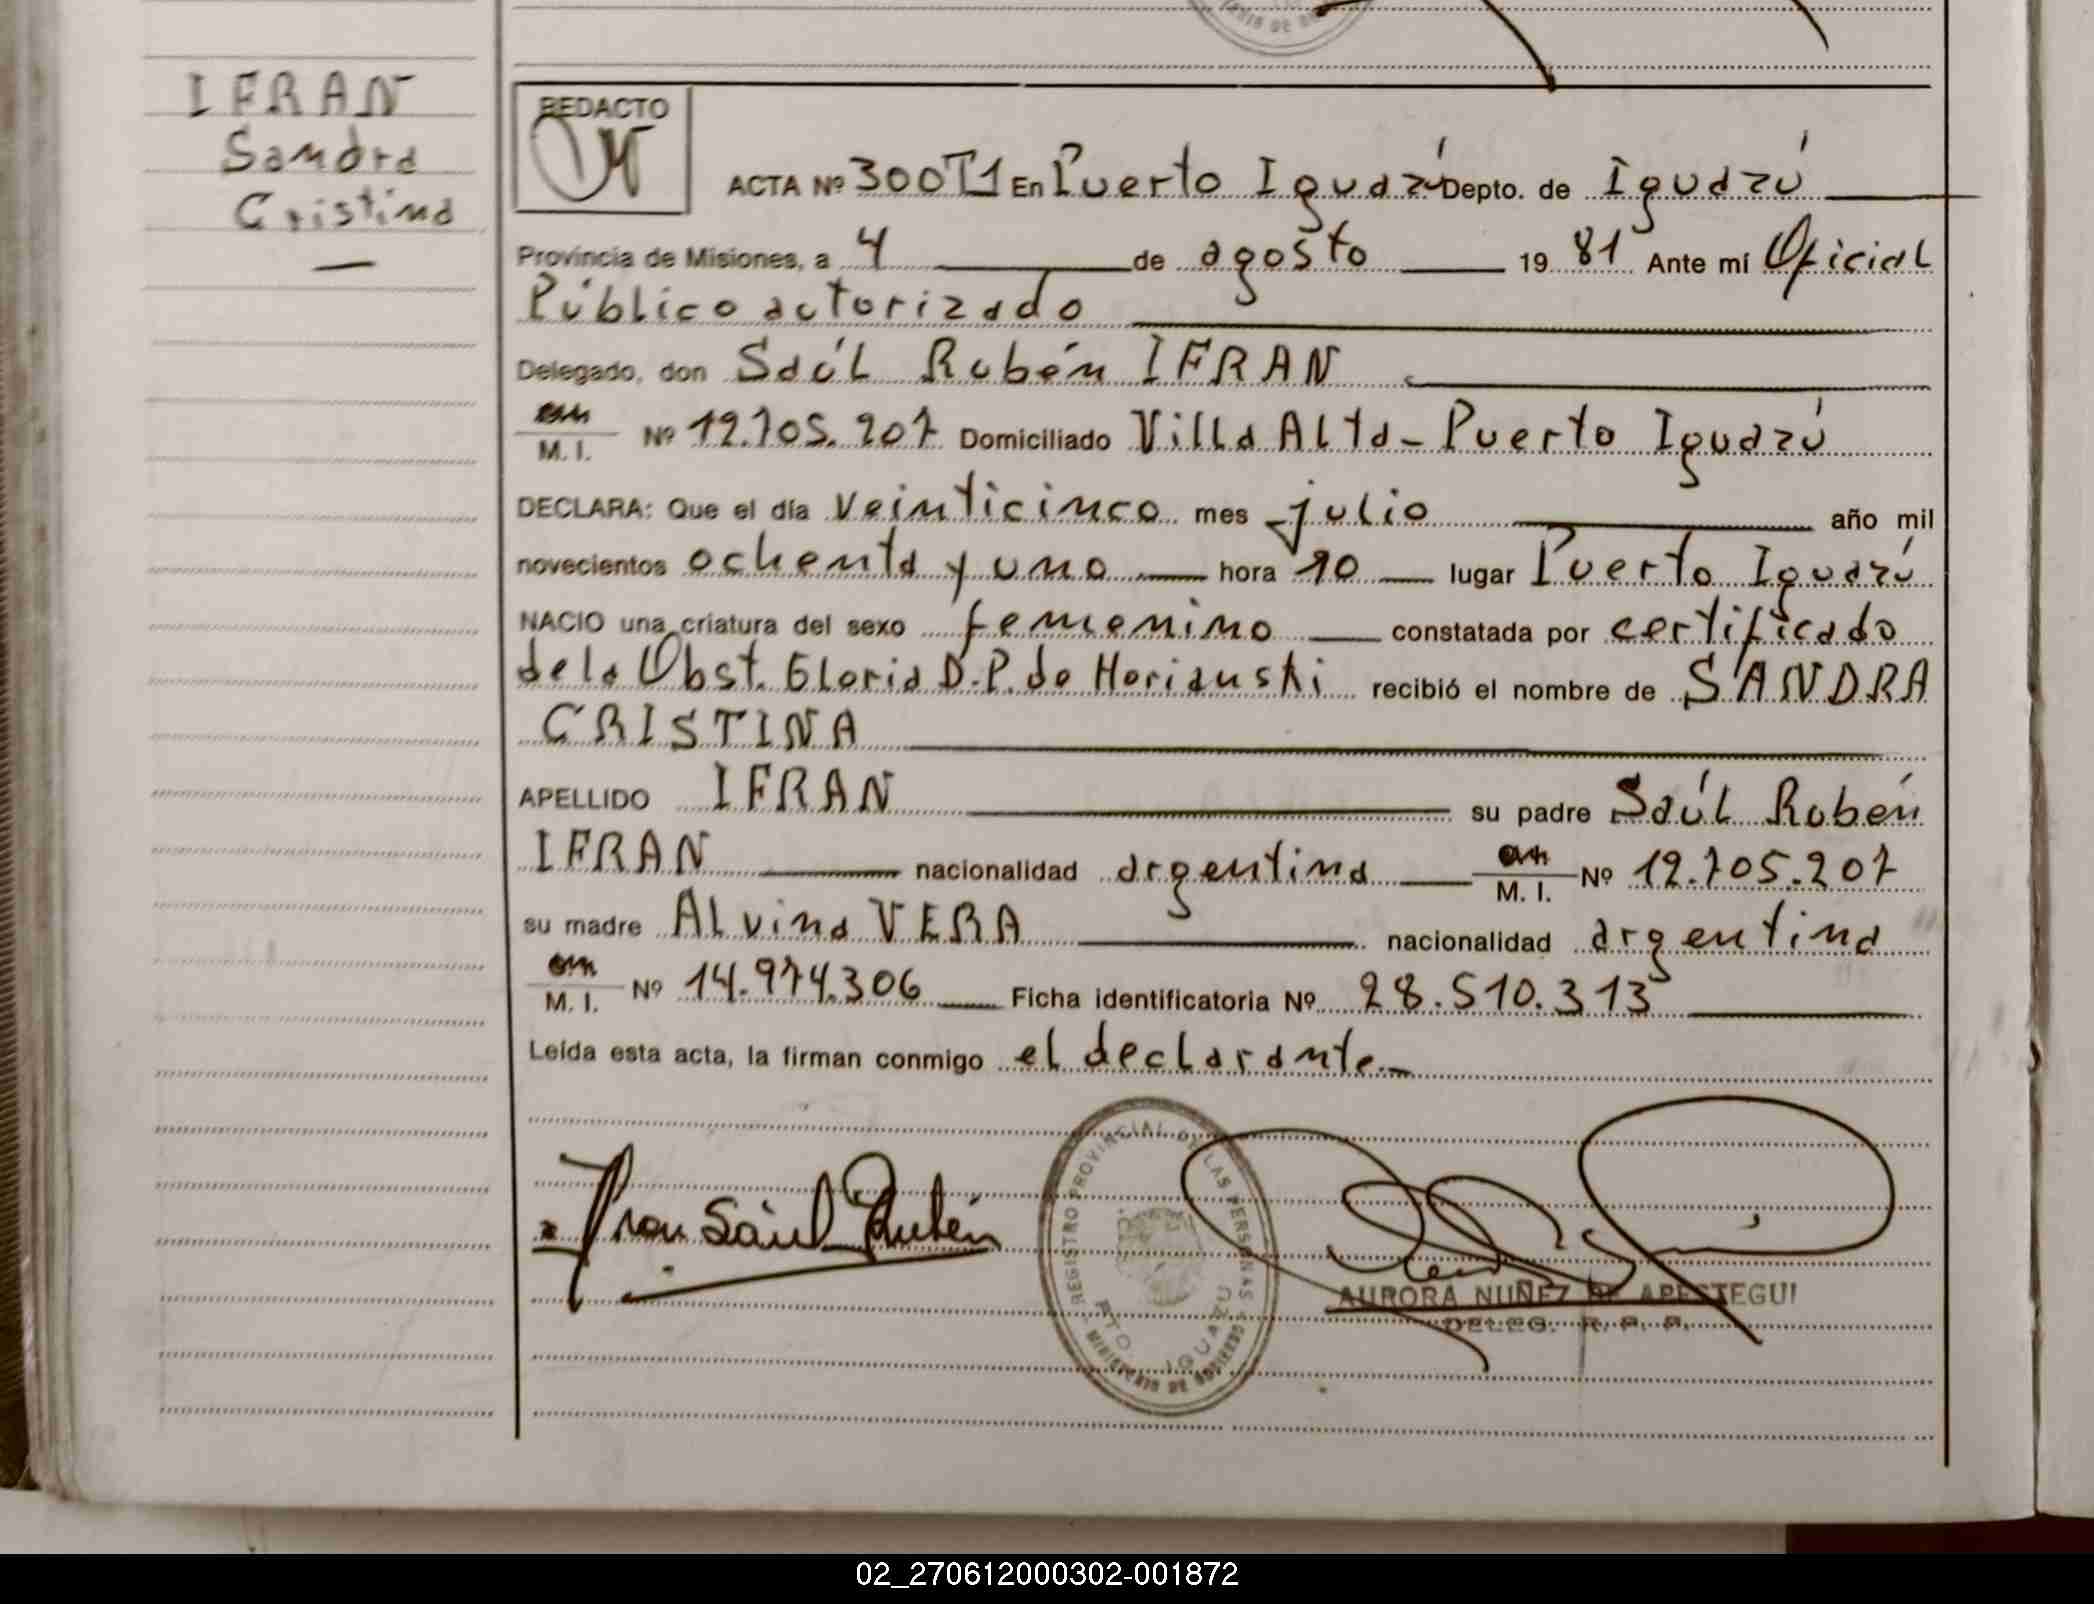 IFRAN
Sandra
Cristina
REDACTO
ACTA Nº 300T1 En Puerto Iguazú Depto. de Iguazú
Provincia de Misiones, a 4 de agosto 19 81 Ante mí Oficial
Público autorizado
Delegado, don Saúl Rubén IFRAN
M. I. Nº 12.705.207 Domiciliado Villa Alta - Puerto Iguazú
DECLARA: Que el día veinticinco mes julio año mil
novecientos ochenta y uno hora 10 lugar Puerto Iguazú
NACIO una criatura del sexo femenino constatada por certificado
de la Obst. Gloria D.P. de recibió el nombre de SANDRA
CRISTINA
APELLIDO IFRAN su padre Saúl Rubén
IFRAN nacionalidad argentina M. I. Nº 12.705.207
su madre Alvina VERA nacionalidad argentina
M. I. Nº 14.974.306 Ficha identificatoria Nº 28.510.313
Leída esta acta, la firman conmigo el declarante.
Ifran Saúl Rubén
REGISTRO PROVINCIAL DE LAS PERSONAS
PTO. IGUAZU
MINISTERIO DE GOBIERNO
AURORA NUÑEZ DE APESTEGUI
DELEG. R. P. P.
02_270612000302-001872